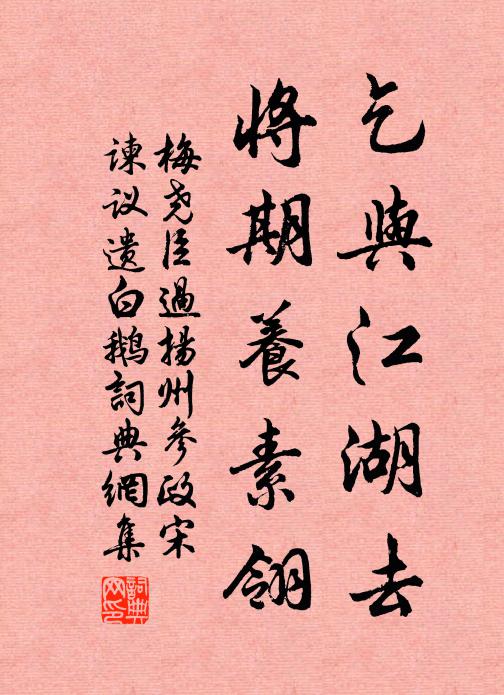 乞與江湖去
將期養素翎
梅尧臣過揚州參政宋
諫议遗白鵝詞典網集
詞典网印